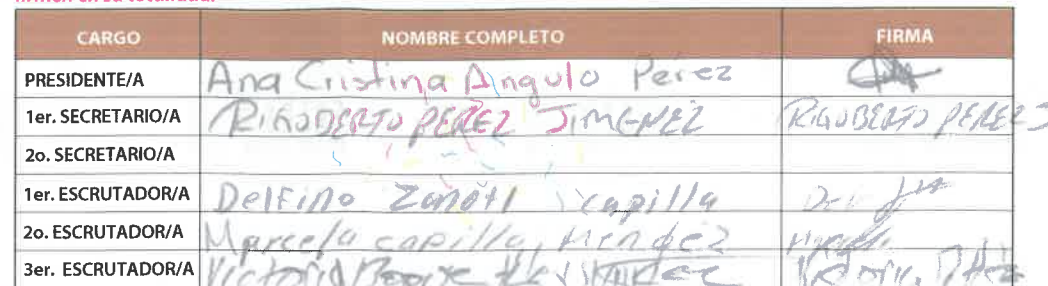 firmen en su totalidad.
CARGO NOMBRE COMPLETO FIRMA
PRESIDENTE/A Ana Cristina Angulo Perez
1er. SECRETARIO/A RIGOBERTO PEREZ JIMENEZ RIGOBERTO PEREZ J
2o. SECRETARIO/A
1er. ESCRUTADOR/A Delfino capilla
2o. ESCRUTADOR/A Marcela capilla Mendez
3er. ESCRUTADOR/A Victoria Victoria